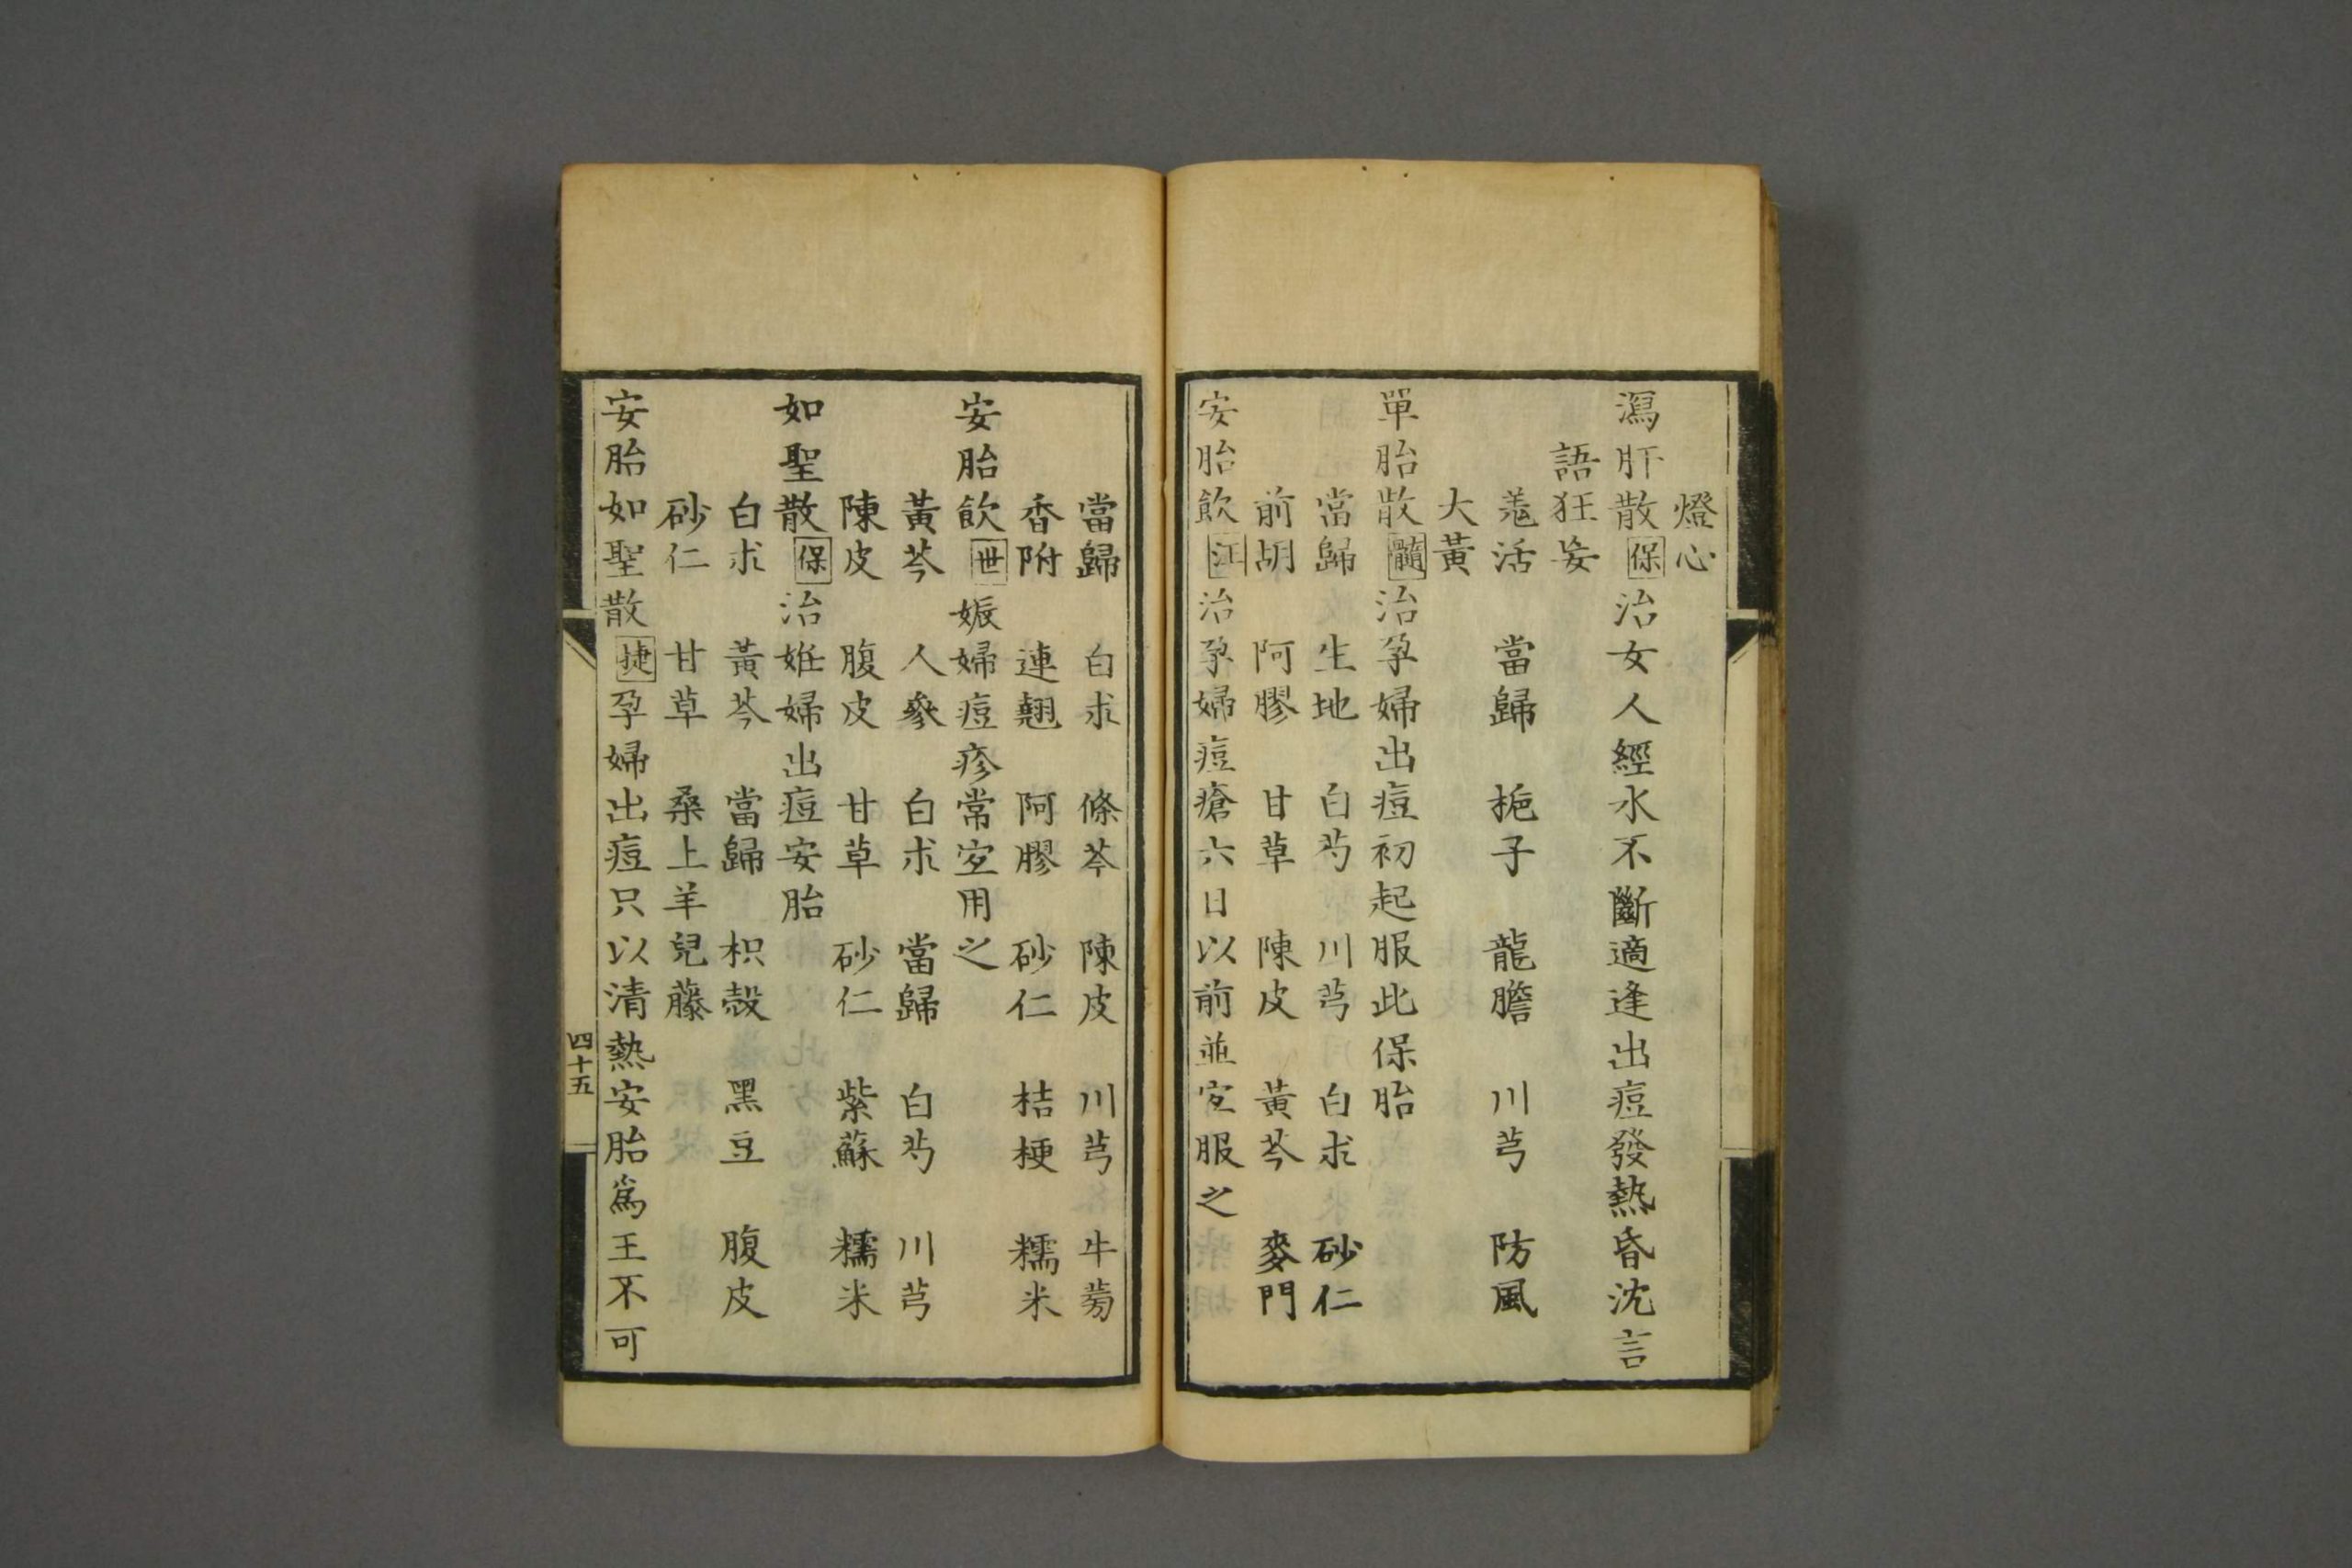 燈心
瀉肝散保治女人經水不斷適逢出痘發熱昏沈言
語狂妄
羗活 當歸 梔子 龍膽 川芎 防風
大黃
單胎散髓治孕婦出痘初起服此保胎
當歸 生地 白芍 川芎 白朮 砂仁
前胡 阿膠 甘草 陳皮 黃芩 麥門
安胎飮江治孕婦痘瘡六日以前並宜服之
當歸 白朮 條芩 陳皮 川芎 牛蒡
香附 連翹 阿膠 砂仁 桔梗 糯米
安胎飮世娠婦痘疹常宜用之
黃芩 人參 白朮 當歸 白芍 川芎
陳皮 腹皮 甘草 砂仁 紫蘇 糯米
如聖散保治姙婦出痘安胎
白朮 黃芩 當歸 枳殼 黑豆 腹皮
砂仁 甘草 桑上羊兒藤
安胎如聖散捷孕婦出痘只以清熱安胎爲王不可
四十五